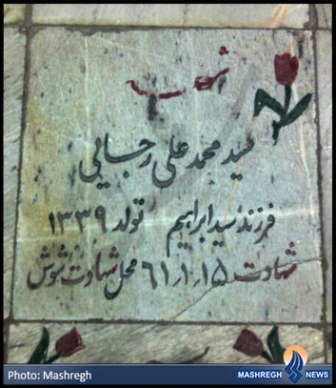 شهید
سید محمد علی رجایی
فرزند سید ابراهیم تولد ۱۳۳۹
شهادت ۶۱٫۱٫۱۵ محل شهادت شوش
Photo: Mashregh
MASHREGH NEWS